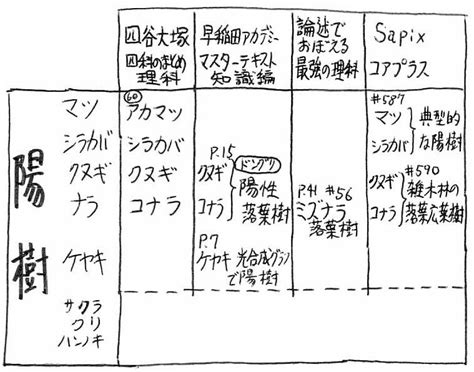 四谷大塚
四科のまとめ
理科
早稲田アカデミー
マスターテキスト
知識編
論述で
おぼえる
最強の理科
Sapix
コアプラス
陽樹
マツ
シラカバ
クヌギ
ナラ
ケヤキ
サクラ
クリ
ハンノキ
60
アカマツ
シラカバ
クヌギ
コナラ
P.15
クヌギ
コナラ
ドングリ
陽性
落葉樹
P.7
ケヤキ 光合成グラフ
で陽樹
P.41 #56
ミズナラ
落葉樹
#587
マツ
シラカバ
典型的
な陽樹
クヌギ
コナラ
#590
雑木林の
落葉広葉樹